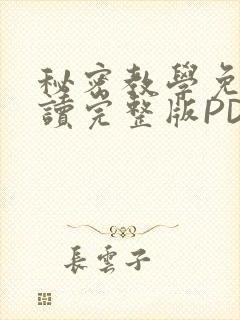 秘密教學免
讀完整版PD
長雲子